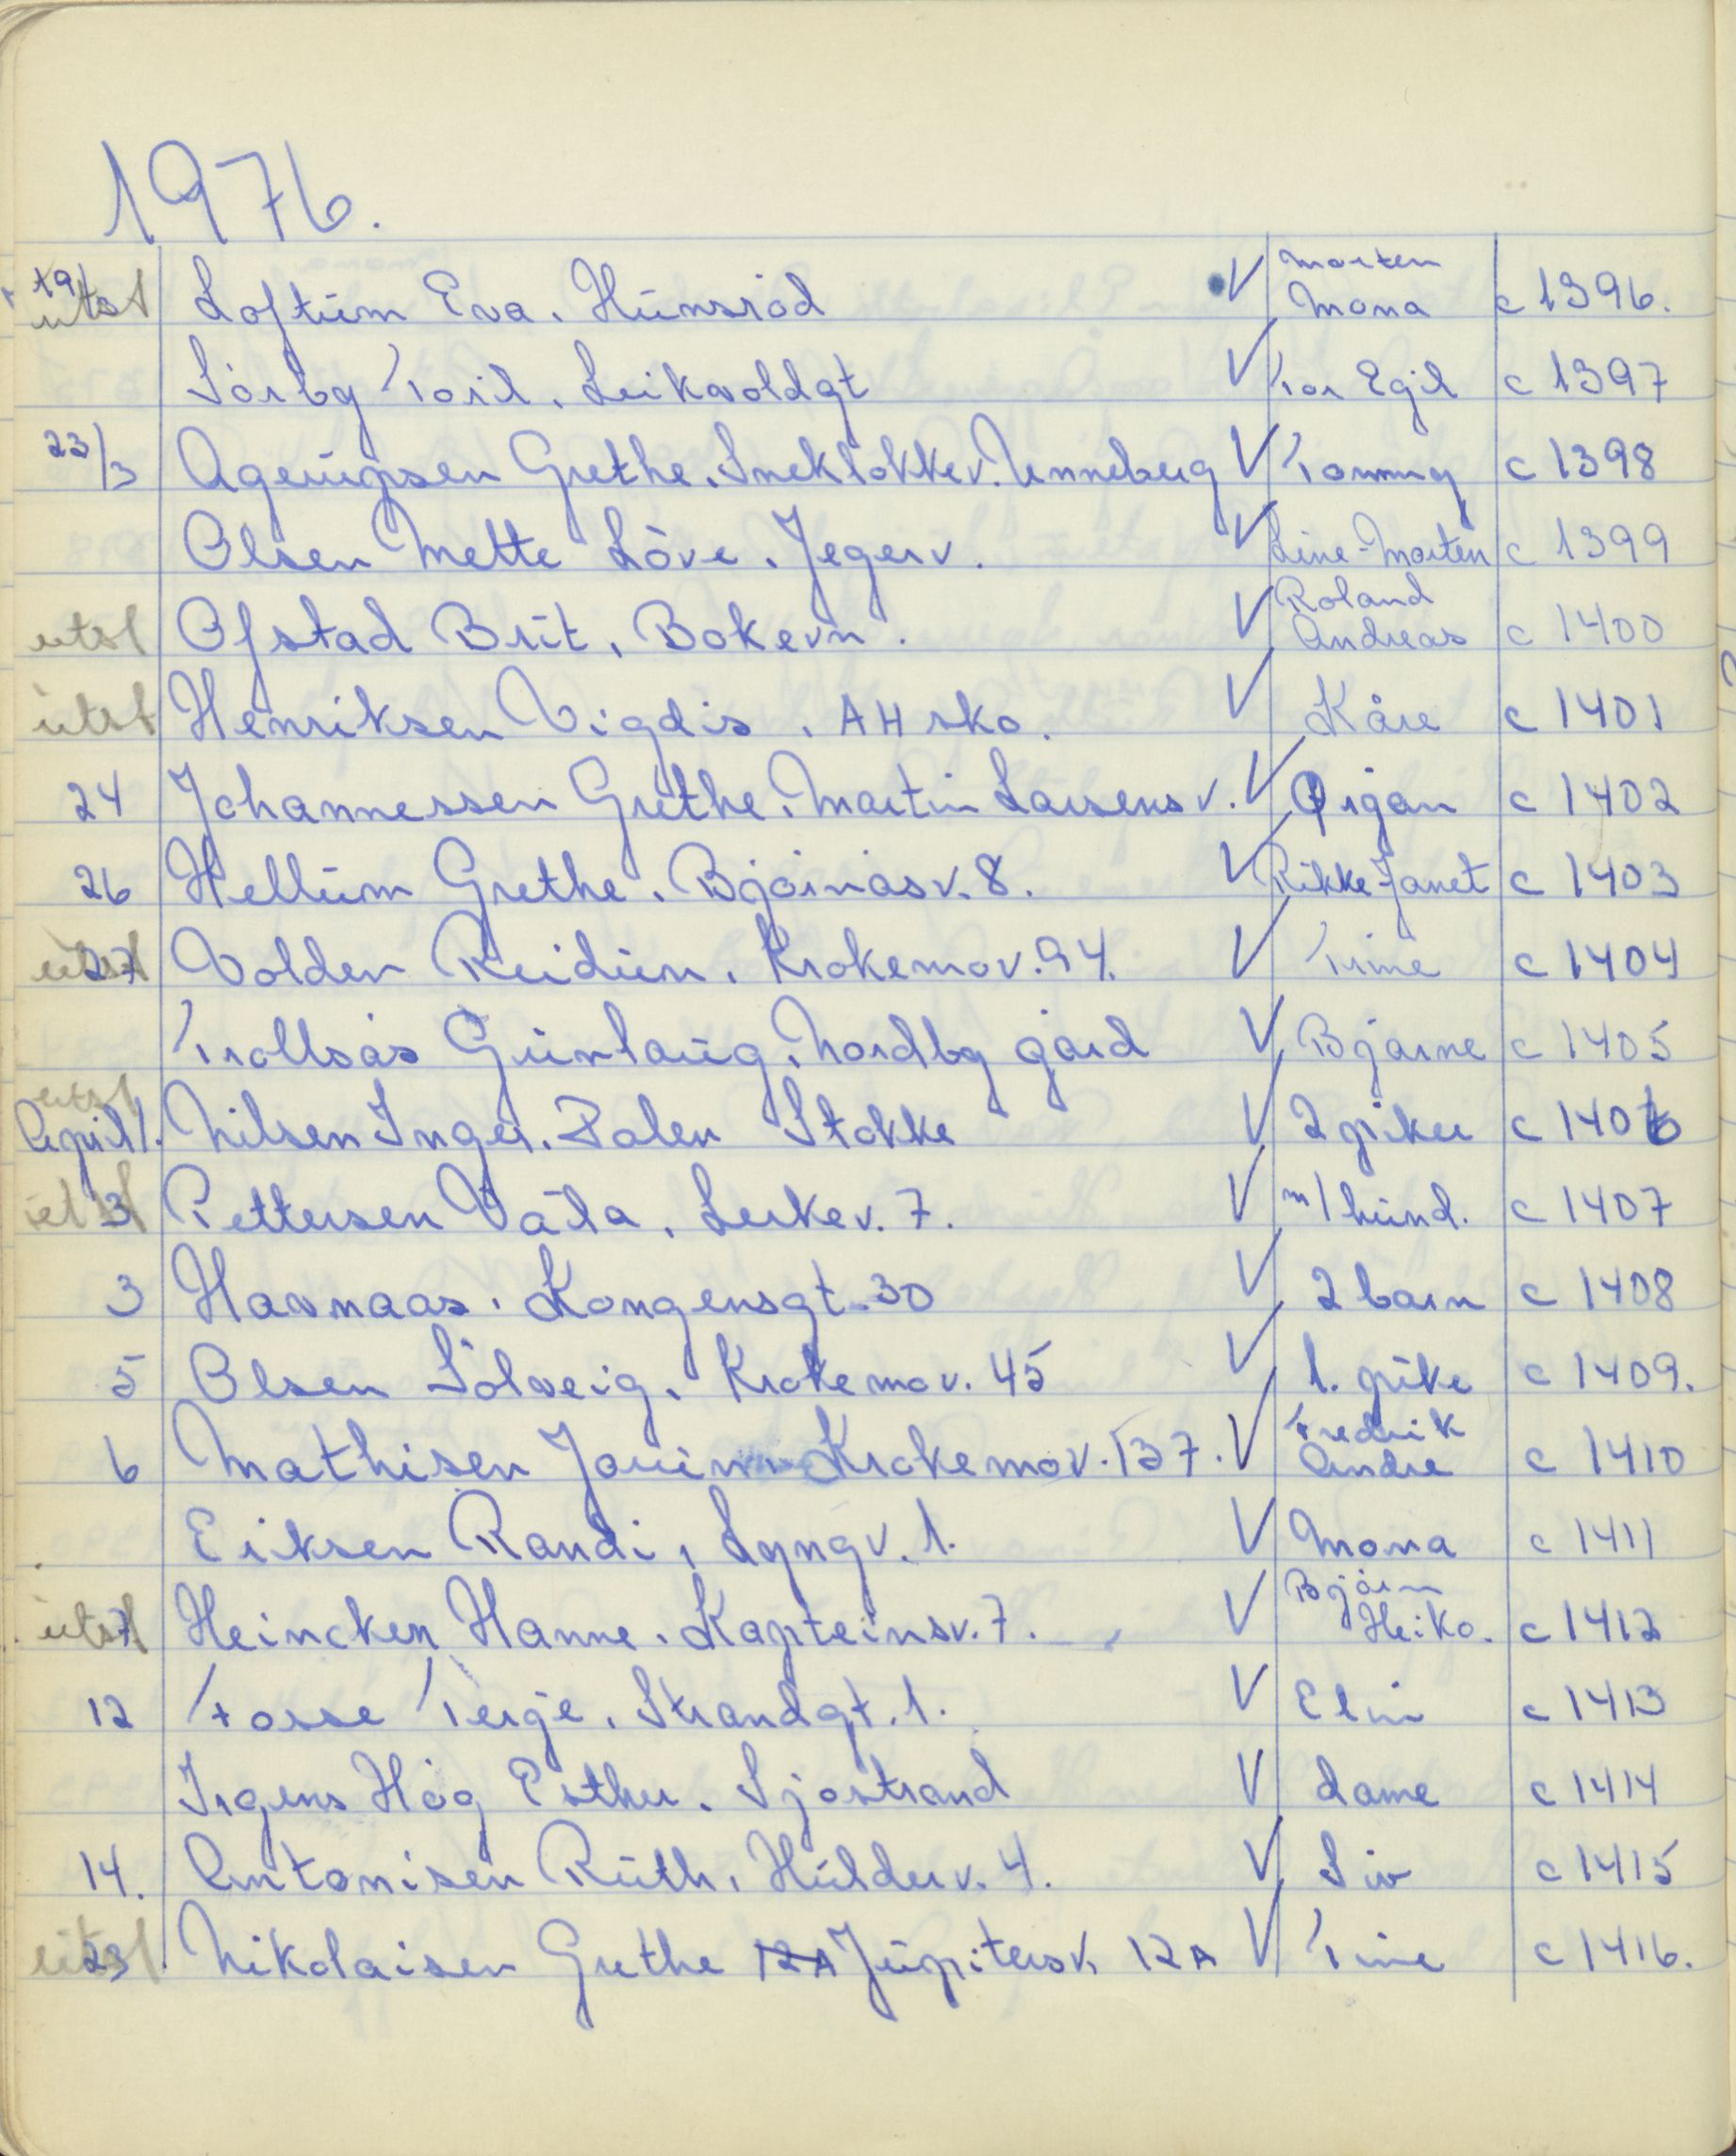 1976.
19/ utst Loftum Eva. Hunsrød V Morten Mona c 1396.
Sørby Toril. Leikvoldgt V Tor Egil c 1397
23/3 Agerupsen Grethe. Sneklokkev. Unneberg V Tommy c 1398
Olsen Mette Løve. Jegerv. V Line-Morten c 1399
utst Ofstad Brit. Bokevn. V Roland Andreas c 1400
utst Henriksen Vigdis. AH sko. V Kåre c 1401
24 Johannessen Grethe. Martin Larsens v. V Ørjan c 1402
26 Hellum Grethe. Bjørnåsv. 8. V Rikke-Janet c 1403
utst 27 Volden Reidun. Krokemov. 94. V Trine c 1404
Trollsås Gunlaug. Nordby gård V Bjarne c 1405
utst April 1. Nilsen Inger. Dalen Stokke V 2 piker c 1406
utst 3 Pettersen Våla. Lerkev. 7. V m/hund. c 1407
3 Havnaas. Kongensgt. 30 V 2 barn c 1408
5 Olsen Sølveig. Krokemov. 45 V 1. pike c 1409.
6 Mathisen Krokemov. 137. V Fredrik Andre c 1410
Eriksen Randi, Lyngv. 1. V Mona c 1411
utst 7 Heincken Hanne. Kapteinsv. 7. V Bjørn Heiko. c 1412
12 Fosse Terje. Strandgt. 1. V Elin c 1413
Irgens Høg Esther. Sjøstrand V dame c 1414
14. Antonisen Ruth. Hulderv. 4. V Siv c 1415
utst 23 Nikolaisen Grethe 12A Jupitersv. 12A V Tine c 1416.